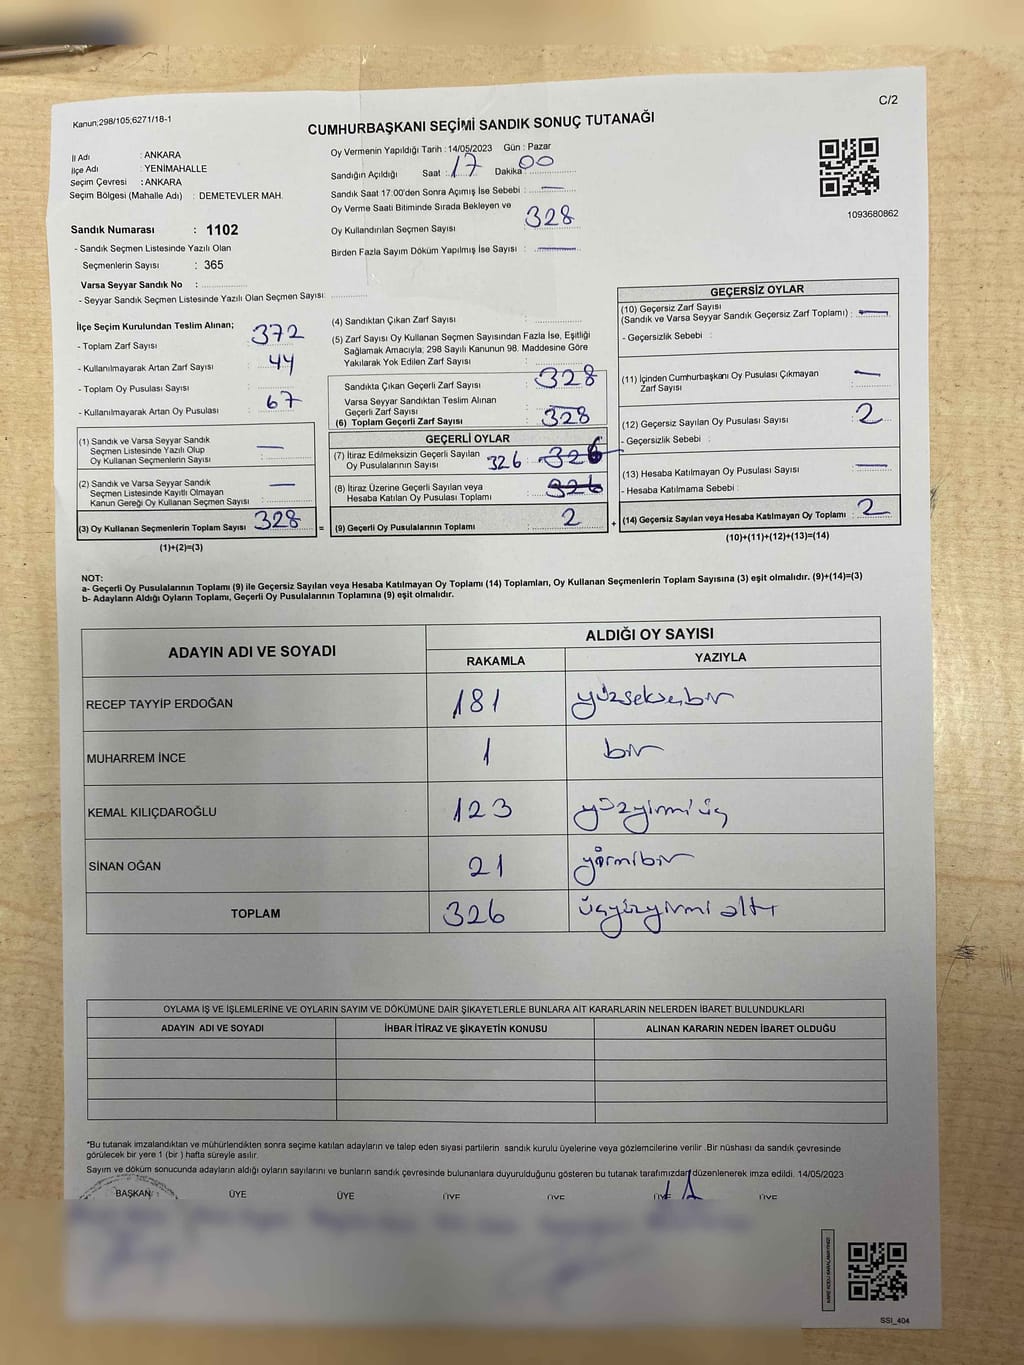 C/2
Kanun;298/105;6271/18-1
CUMHURBAŞKANI SEÇİMİ SANDIK SONUÇ TUTANAĞI
İl Adı : ANKARA
İlçe Adı : YENİMAHALLE
Seçim Çevresi : ANKARA
Seçim Bölgesi (Mahalle Adı) : DEMETEVLER MAH.
Oy Vermenin Yapıldığı Tarih : 14/05/2023 Gün : Pazar
Sandığın Açıldığı Saat : 17 Dakika 00
Sandık Saat 17:00'den Sonra Açımış İse Sebebi : —
Oy Verme Saati Bitiminde Sırada Bekleyen ve
Oy Kullandırılan Seçmen Sayısı 328
Birden Fazla Sayım Döküm Yapılmış İse Sayısı : —
1093680862
Sandık Numarası : 1102
- Sandık Seçmen Listesinde Yazılı Olan
Seçmenlerin Sayısı : 365
Varsa Seyyar Sandık No :
- Seyyar Sandık Seçmen Listesinde Yazılı Olan Seçmen Sayısı:
İlçe Seçim Kurulundan Teslim Alınan;
- Toplam Zarf Sayısı 372
- Kullanılmayarak Artan Zarf Sayısı : 44
- Toplam Oy Pusulası Sayısı :
- Kullanılmayarak Artan Oy Pusulası : 67
(1) Sandık ve Varsa Seyyar Sandık
Seçmen Listesinde Yazılı Olup
Oy Kullanan Seçmenlerin Sayısı : —
(2) Sandık ve Varsa Seyyar Sandık
Seçmen Listesinde Kayıtlı Olmayan
Kanun Gereği Oy Kullanan Seçmen Sayısı : —
(3) Oy Kullanan Seçmenlerin Toplam Sayısı : 328 =
(1)+(2)=(3)
(4) Sandıktan Çıkan Zarf Sayısı :
(5) Zarf Sayısı Oy Kullanan Seçmen Sayısından Fazla İse, Eşitliği
Sağlamak Amacıyla; 298 Sayılı Kanunun 98. Maddesine Göre
Yakılarak Yok Edilen Zarf Sayısı :
Sandıkta Çıkan Geçerli Zarf Sayısı : 328
Varsa Seyyar Sandıktan Teslim Alınan
Geçerli Zarf Sayısı : —
(6) Toplam Geçerli Zarf Sayısı : 328
GEÇERLİ OYLAR
(7) İtiraz Edilmeksizin Geçerli Sayılan
Oy Pusulalarının Sayısı 326 : 326
(8) İtiraz Üzerine Geçerli Sayılan veya
Hesaba Katılan Oy Pusulası Toplamı : 326
(9) Geçerli Oy Pusulalarının Toplamı : 2 +
GEÇERSİZ OYLAR
(10) Geçersiz Zarf Sayısı
(Sandık ve Varsa Seyyar Sandık Geçersiz Zarf Toplamı) : —
- Geçersizlik Sebebi :
(11) İçinden Cumhurbaşkanı Oy Pusulası Çıkmayan
Zarf Sayısı : —
(12) Geçersiz Sayılan Oy Pusulası Sayısı : 2
- Geçersizlik Sebebi :
(13) Hesaba Katılmayan Oy Pusulası Sayısı : —
- Hesaba Katılmama Sebebi :
(14) Geçersiz Sayılan veya Hesaba Katılmayan Oy Toplamı : 2
(10)+(11)+(12)+(13)=(14)
NOT:
a- Geçerli Oy Pusulalarının Toplamı (9) ile Geçersiz Sayılan veya Hesaba Katılmayan Oy Toplamı (14) Toplamları, Oy Kullanan Seçmenlerin Toplam Sayısına (3) eşit olmalıdır. (9)+(14)=(3)
b- Adayların Aldığı Oyların Toplamı, Geçerli Oy Pusulalarının Toplamına (9) eşit olmalıdır.
ADAYIN ADI VE SOYADI
ALDIĞI OY SAYISI
RAKAMLA YAZIYLA
RECEP TAYYİP ERDOĞAN 181 yüzseksenbir
MUHARREM İNCE 1 bir
KEMAL KILIÇDAROĞLU 123 yüzyirmiüç
SİNAN OĞAN 21 yirmibir
TOPLAM 326 üçyüzyirmi altı
OYLAMA İŞ VE İŞLEMLERİNE VE OYLARIN SAYIM VE DÖKÜMÜNE DAİR ŞİKAYETLERLE BUNLARA AİT KARARLARIN NELERDEN İBARET BULUNDUKLARI
ADAYIN ADI VE SOYADI İHBAR İTİRAZ VE ŞİKAYETİN KONUSU ALINAN KARARIN NEDEN İBARET OLDUĞU
*Bu tutanak imzalandıktan ve mühürlendikten sonra seçime katılan adayların ve talep eden siyasi partilerin sandık kurulu üyelerine veya gözlemcilerine verilir .Bir nüshası da sandık çevresinde
görülecek bir yere 1 (bir ) hafta süreyle asılır.
Sayım ve döküm sonucunda adayların aldığı oyların sayılarını ve bunların sandık çevresinde bulunanlara duyurulduğunu gösteren bu tutanak tarafımızdan düzenlenerek imza edildi. 14/05/2023
BAŞKAN ÜYE ÜYE ÜYE ÜYE ÜYE ÜYE
SSI_404